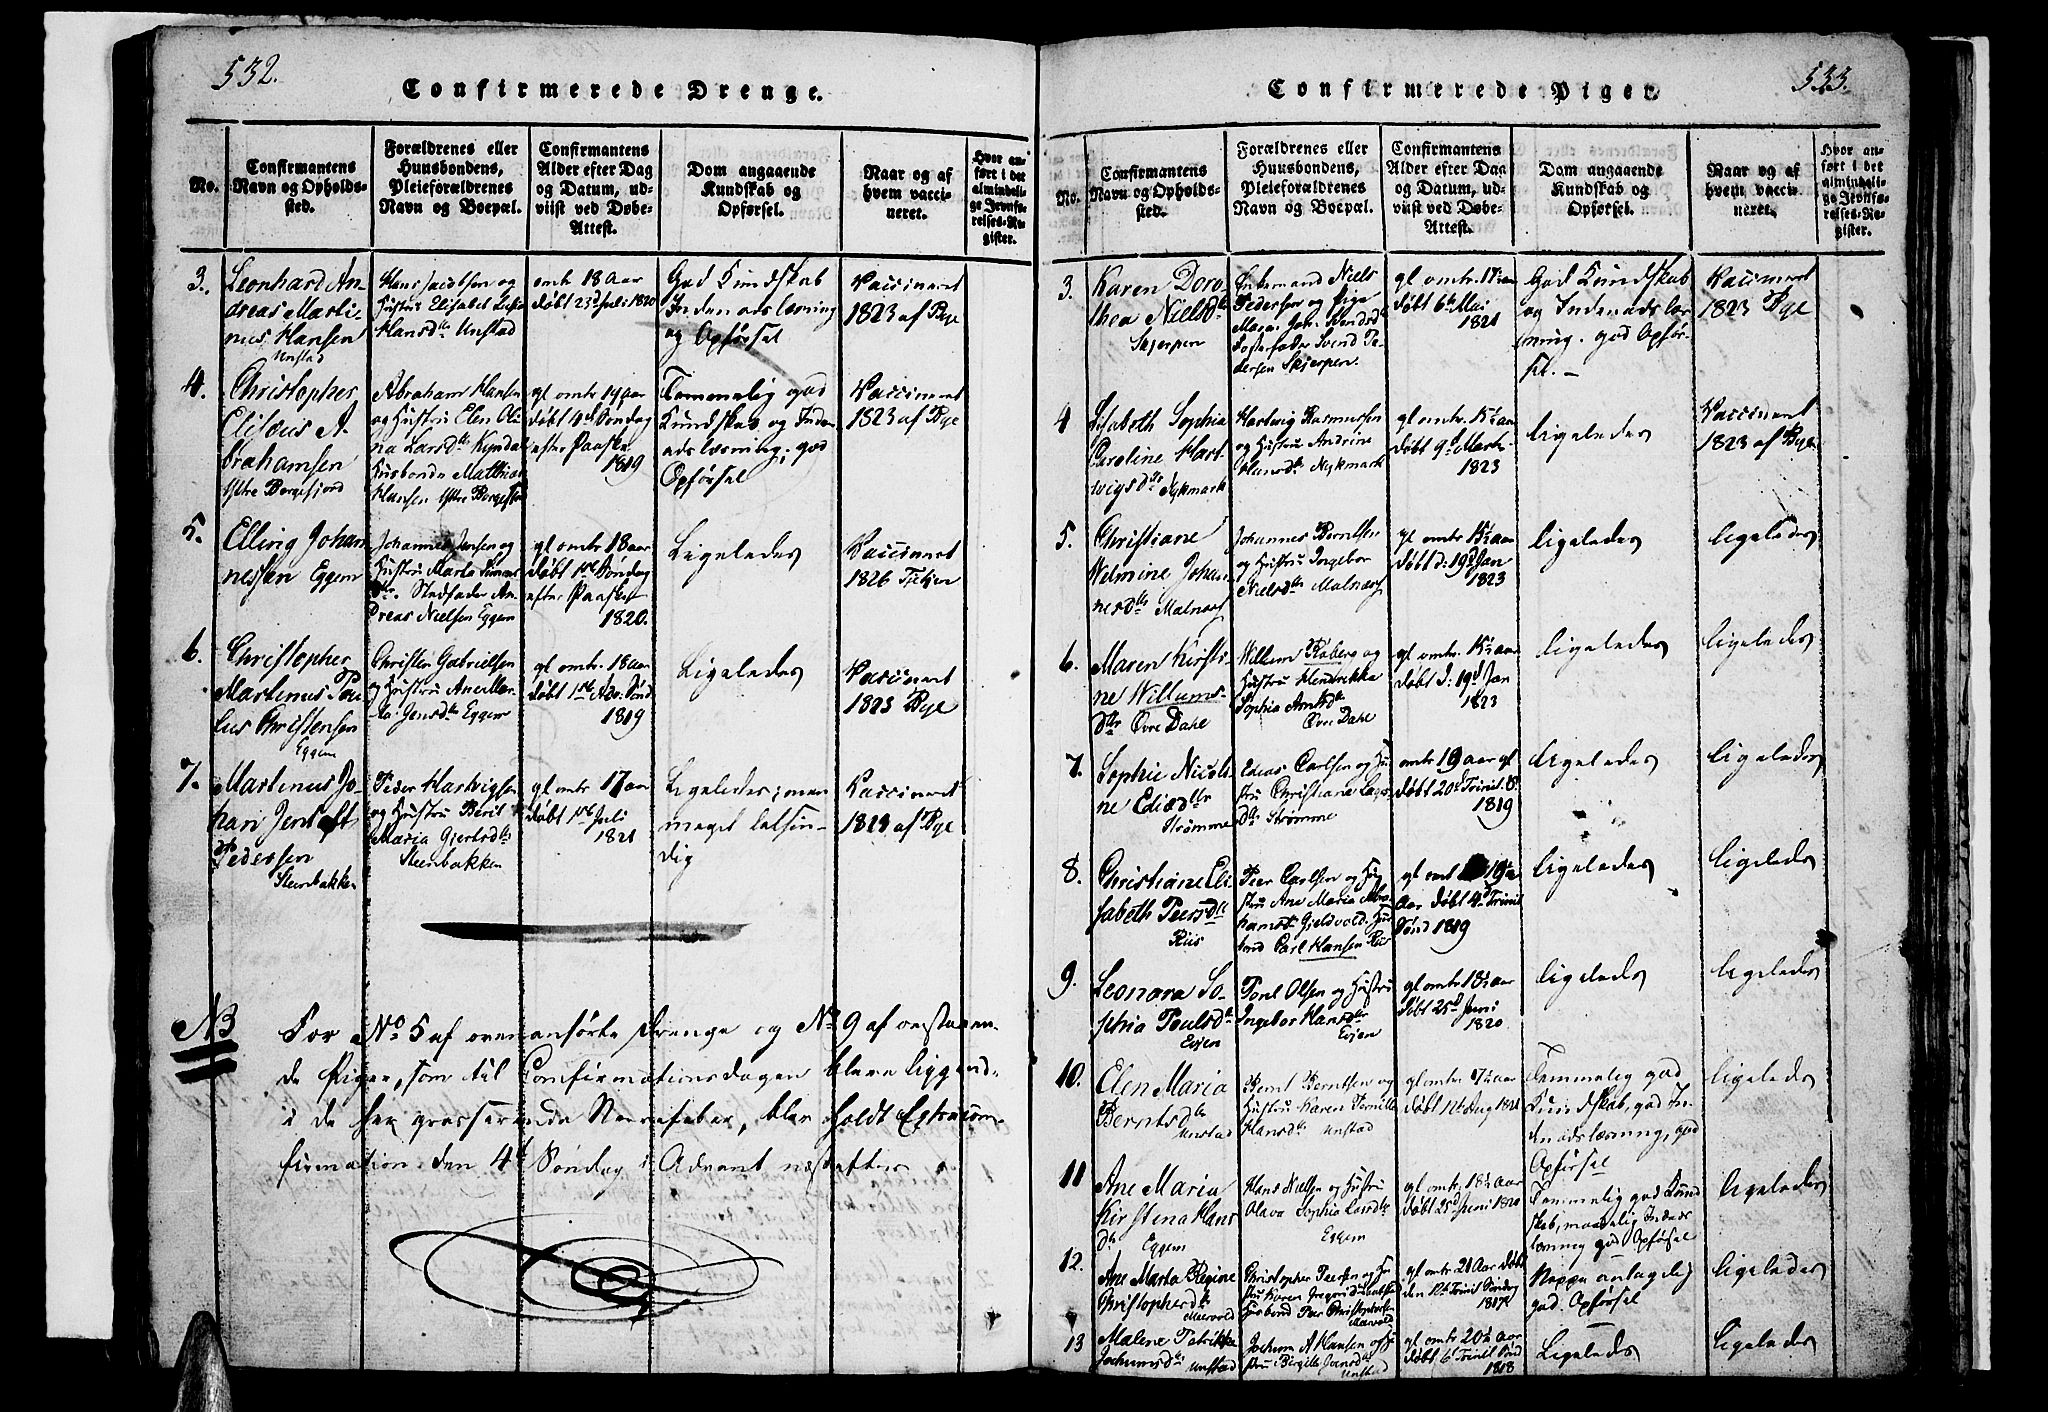 532.
Confirmerede Drenge.
No.
Confirmantens
Navn og Opholds-
sted.
Forældrenes eller
Huusbondens,
Pleieforældrenes
Navn og Boepæl.
Confirmantens
Alder efter Dag
og Datum, ud-
viist ved Døbe-
Attest.
Dom angaaende
Kundskab og
Opførsel.
Naar og af
hvem vacci-
neret.
Hvor an-
ført i det
almindeli-
ge Jevnfø-
relses-Re-
gister.
3.
Leonhard An-
dreas Marti-
nus Hansen
Unstad
Hans Jacobsen og
Hustru Elisabet
Hansdtr Unstad
omtr 18 Aar
døbt 23d Juli 1820
God Kundskab
Indenadslæsning
og Opførsel
Vaccineret
1823 af Bye
4.
Christopher
Elisæus A-
brahamsen
Ytre Borgefjord
Abraham Hansen
og Hustru Elen Oli-
na Larsdtr
Husbonde Matthias
Hansen Ytre Borgefjord
gl omtr 19 aar
døbt 4d Søndag
efter Paaske
1819
Temmelig god
Kundskab og Inden-
adslæsning, god
Opførsel
Vaccineret
1823 af Bye
5.
Elling Johan-
nessen Eggem
Johannes Jensen og
Hustru Marta Simons
dtr. Stedfader An-
dreas Nielsen Eggem
gl omtr 18 aar
døbt 1ste Søndag
efter Paaske
1820.
Ligeledes
Vaccineret
1826
6.
Christopher
Martinus Pau-
lus Christensen
Eggem
Christen Gabrielsen
og Hustru
Jensdtr Eggem
gl omtr. 18 aar
døbt 1ste Adv. Sønd
1819
Ligeledes
Vaccineret
1823 Bye
7.
Martinus Jo-
han Jentoft
Pedersen
Steenbakken
Peder Hartvigsen
og Hustru Berit
Maria Gjertsdtr
Steenbakken
gl omtr. 17 aar
døbt 1ste Juli
1821
Ligeledes; men
meget letsin-
dig
Vaccineret
1823 af Bye
NB
For No 5 af ovenanførte Drenge og No 9 af
de Piger, som til Confirmationsdagen bleve liggend-
i de her grasserende Nervefeber, blev holdt Extracon-
firmation den 4d Søndag i Advent næstefter
533.
Confirmerede Piger.
No.
Confirmantens
Navn og Opholds-
sted.
Forældrenes eller
Huusbondens,
Pleieforældrenes
Navn og Boepæl.
Confirmantens
Alder efter Dag
og Datum, ud-
viist ved Døbe-
Attest.
Dom angaaende
Kundskab og
Opførsel.
Naar og af
hvem vacci-
neret.
Hvor an-
ført i det
almindeli-
ge Jevnfø-
relses-Re-
gister.
3.
Karen Doro-
thea Nielsdtr
Skjerpen
Enkemand Niels
Pedersen og Pige
Maria Joh. Svendsdtr
Fosterfader Svend Pe-
dersen Skjerpen.
gl omtr. 17½ aar
døbt 6te Mai
1821
God Kundskab
og Indenadslæs-
ning. god Opfør-
sel. –
Vaccineret
1823 Bye
4
Elisabeth Sophia
Caroline Hart-
wigsdtr Nykmark
Hartvig Rasmussen
og Hustru Andrine
Hansdtr Nykmark
gl omtr. 15½ aar
døbt 9d Marts
1823
ligeledes
Vaccineret
1823 af Bye
5.
Christiane
Welmine Johan-
nesdtr Malnæs
Johannes Berntsen
og Hustru Ingebor
Nielsdtr Malnæs
gl omtr. 15½ aar
døbt d: 19d Jan
1823
ligeledes
ligeledes
6.
Maren Kirsti-
ne Willums-
dtr Øvre Dahl
Willum Røberg og
Hustru Hendrikka
Sophia Arntsdtr
Øvre Dahl
gl omtr. 15½ aar
døbt d: 19d Jan
1823
ligeledes
ligeledes
7.
Sophie Nicoli-
ne Ediasdtr
Strømme
Edias Carlsen og Hu-
stru Christiana Lars
dtr Strømme
omtr 19 aar gl
døbt 20d Trinit. S.
1819
ligeledes
ligeledes
8.
Christiane Eli-
sabeth Peersdtr
Riis
Peer Carlsen og Hu-
stru Ane Maria Abra-
hamsdtr Gjeldvold. Hus-
bond Carl Hansen Riis
gl omt 19½
Aar døbt 4d Trinit
Sønd 1819
ligeledes
ligeledes
9.
Leonora So-
phia Poulsdtr
Evjen
Poul Olsen og Hustru
Ingebor Hansdtr
Evjen
gl omtr 18½ aar
døbt 25d Juni
1820
ligeledes
ligeledes
10.
Elen Maria
Berntsdtr
Unstad
Bernt Berntsen og
Hustru Karen Pernille
Hansdtr Unstad
gl omtr. 17½ aar
døbt 12t Aug 1821
Temmelig god
Kundskab, god In-
denadslæsning, god
Opførsel
ligeledes
11
Ane Maria
Kirstena Hans
dtr Eggem
Hans Nielsen og Hustru
Olava Sophia Larsdtr
Eggem
gl omtr. 18½ aar
døbt 25d Juni 1820
Temmelig god Kund
skab, maadelig Indenads
læsning god Opførsel
ligeledes
12.
Ane Marta Regine
Christophersdtr
Mærvold
Christopher Peersen og Hu-
stru Karen
Husbond Peer Christophersen
Mærvold
gl omtr 21 Aar døbt
den 12t Trinit Søndag
1817
Neppe antagelig
god Opførsel
ligeledes
13
Malene Patrikke
Jochumsdtr
Unstad
Jochum A Hansen og Hu-
stru Birgitte Jonsdtr
Unstad
gl omtr 20½ aar
døbt 6t Trinit Sønd
1818
Ligeleds
ligeledes